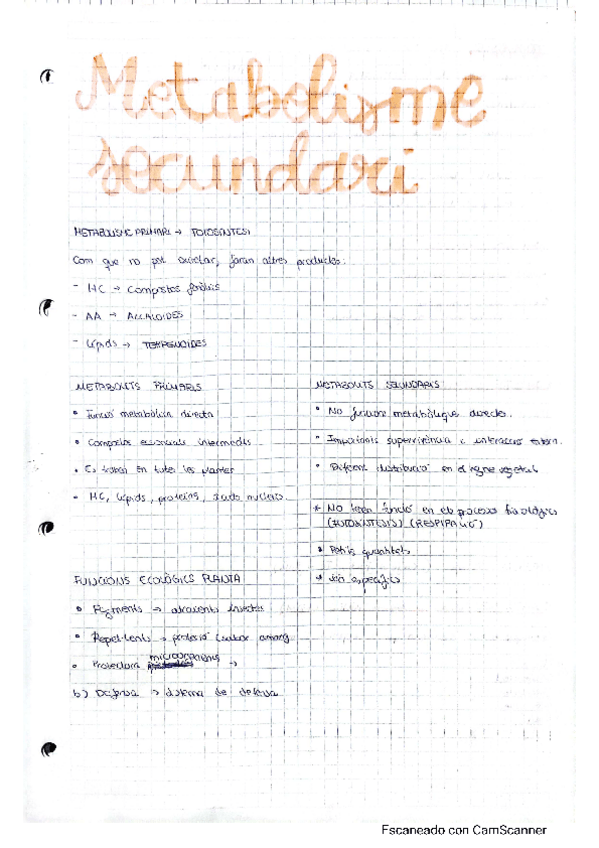 Metabolisme
secundari
METABOLISME PRIMARI → FOTOSINTESI
Com que no pot excretar, faran altres productes:
- HC → Compostos fenòlics
- AA → ALCALOIDES
- Lípids → TERPENOIDES
METABOLITS PRIMARIS
• Funció metabòlica directa
• Compostos essencials intermedis
• Es troben en totes les plantes
• HC, lípids, proteïnes, àcids nucleics
METABOLITS SECUNDARIS
• No funcions metabòliques directes.
• Importants supervivència i interaccions extern.
• Diferent distribució en el regne vegetal
* NO tenen funció en els processos fisiològics
(FOTOSINTESIS) (RESPIRACIÓ)
• Petites quantitats
• són específics
FUNCIONS ECOLÒGICS PLANTA
• Pigments → atraients insectes
• Repel·lents → protecció (sabor amarg
• Protectora microorganismes →
b) Defensa → sistema de defensa
Escaneado con CamScanner